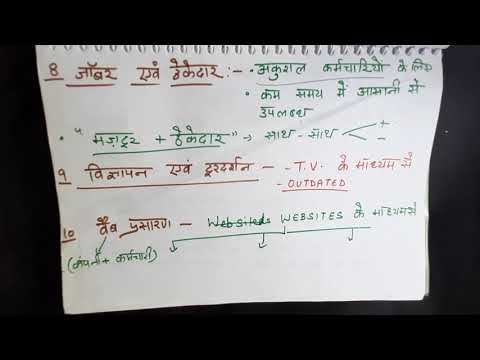 8 जॉबर एवं ठेकेदार :- • अकुशल कर्मचारियों के लिए
• कम समय में आसानी से
उपलब्ध
• "मज़दूर + ठेकेदार" → साथ-साथ + -
9 विज्ञापन एवं दूरदर्शन - - T.V. के माध्यम से
- OUTDATED
10 वैब प्रसारण - WEBSITES के माध्यम से
(कंपनी + कर्मचारी)